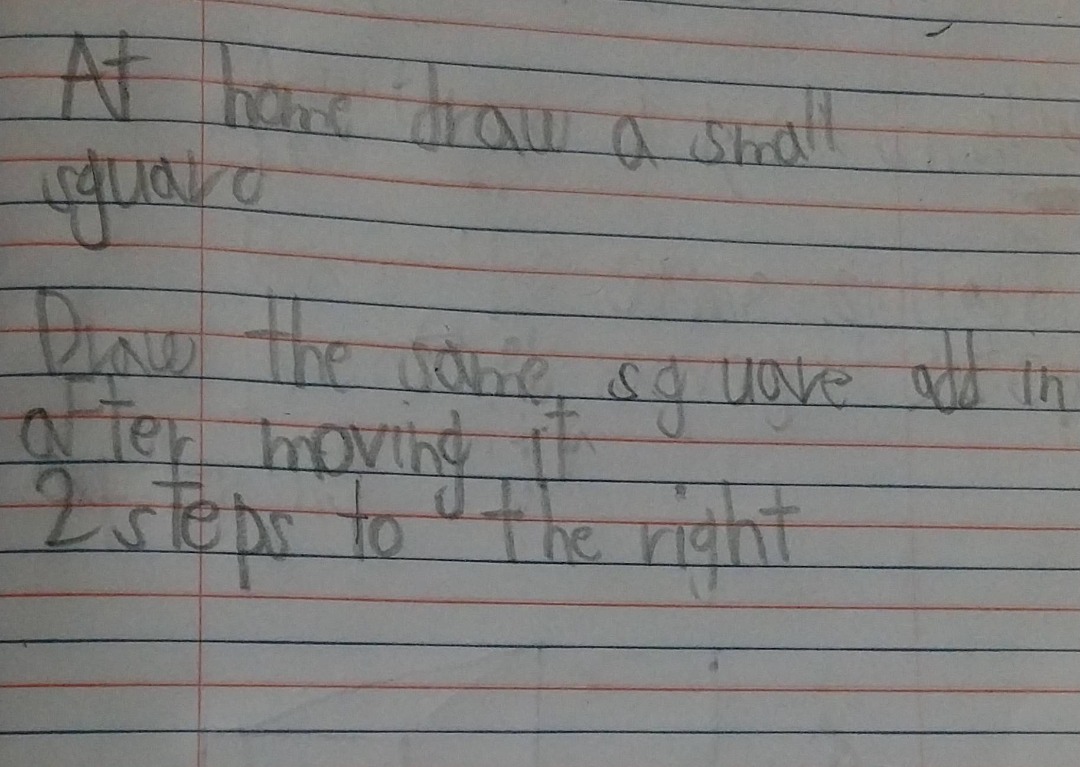 At home draw a small
square
Draw the same square add in
after moving it
2 steps to the right